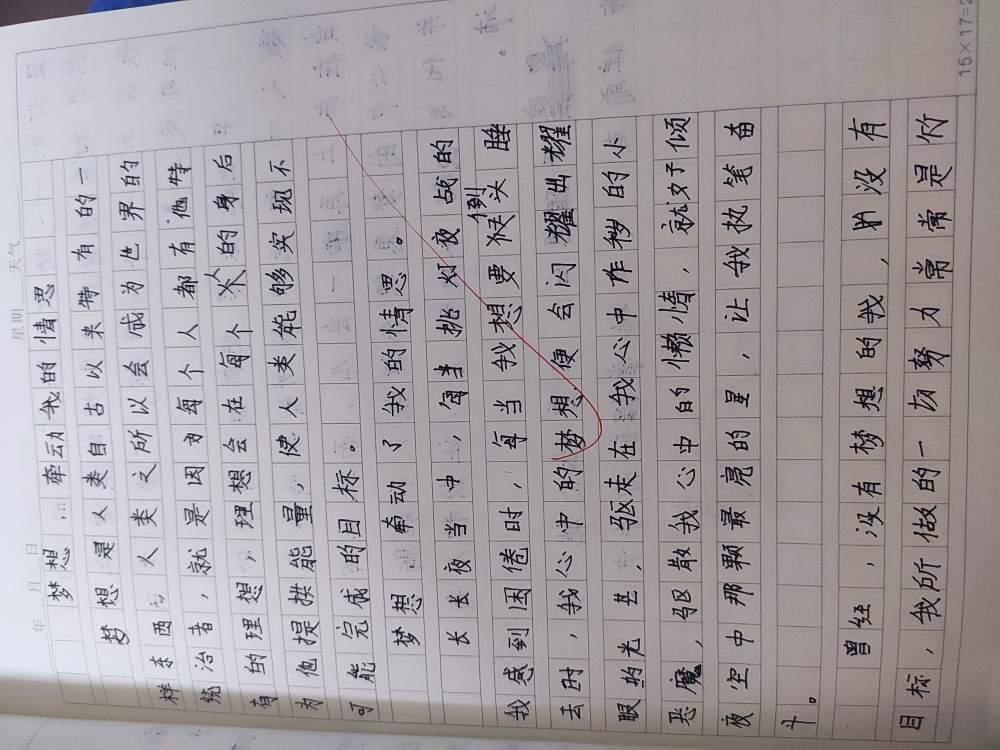 年 月 日 星期 天气
梦想，牵动我的情思
梦想是人类自古以来特有的一
样东西，人类之所以会成为世界的
统治者，就是因为每个人都有他特
有的理想，理想会在每个人的身后
为他提拱能量，使人类能够实现不
可能完成的目标。
梦想牵动了我的情思。
长长夜当中，每当挑灯夜战的
我感到困倦时，每当我想要倒头睡
去时，我心中的梦想，便会闪耀出耀
眼的光芒，驱走在我心中作秽的小
恶魔，驱散我心中的懒惰，就好倾
夜空中那颗最亮的星，让我执笔奋
斗。
曾经，没有梦想的我，没有
目标，我所做的一切努力常常是竹
15×17=2